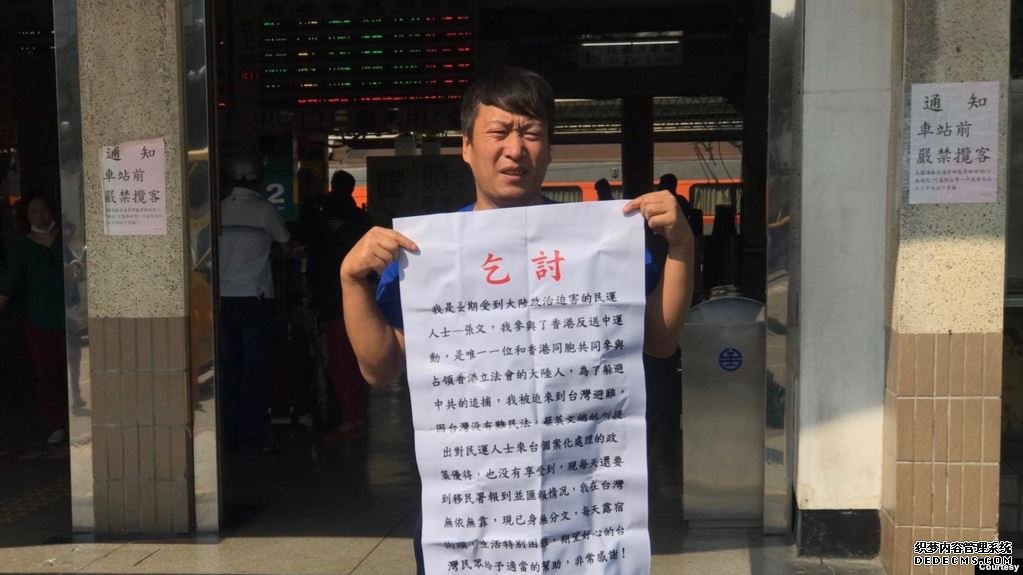 通 知
車站前
嚴禁攬客
2
通 知
車站前
嚴禁攬客
乞討
我是長期受到大陸政治迫害的民運
人士—張文，我參與了香港反送中運
動，是唯一一位和香港同胞共同參與
占領香港立法會的大陸人，為了躲避
中共的追捕，我被迫來到台灣避難，
因台灣没有難民法，蔡英文總統所提
出對民運人士來台個案化處理的政
策優待，也没有享受到，現每天還要
到移民署報到並匯報情況，我在台灣
無依無靠，現已身無分文，每天露宿
街頭，生活特别困難，期望好心的台
灣民眾給予適當的幫助，非常感謝！
织梦内容管理系统
DEDECMS.COM
Courtesy